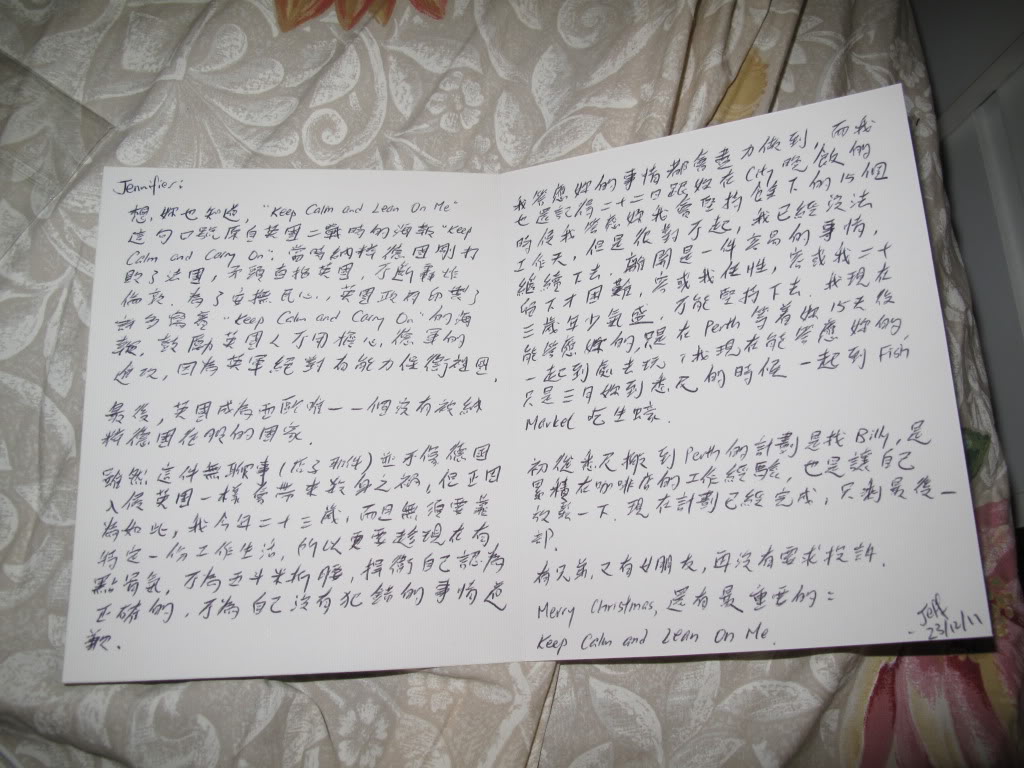 Jennifer:
想妳也知道, "Keep Calm and Lean On Me"
這句口號原自英國二戰時的海報 "Keep
Calm and Carry On". 當時納粹德國剛打
敗了法國, 矛頭直指英國, 不斷轟炸
倫敦. 為了安撫民心, 英國政府印製了
許多寫着 "Keep Calm and Carry On" 的海
報, 鼓勵英國人不用擔心德軍的
進攻, 因為英軍絕對有能力保衛祖國.
最後, 英國成為西歐唯一一個沒有被納
粹德國征服的國家.
雖然這件無聊事 (底子那件) 並不像德國
入侵英國一樣會帶來殺身之禍, 但正因
為如此, 我今年二十三歲, 而且無須要靠
特定一份工作生活, 所以更要趁現在有
點勇氣, 不為五斗米折腰, 捍衛自己認為
正確的, 不為自己沒有犯錯的事情道
歉.
我答應妳的事情都會盡力做到, 而我
也還記得二十二日跟妳在 City 吃飯的
時侯我答應妳我會堅持餘下的15個
工作天, 但是很對不起, 我已經沒法
繼續下去. 離開是一件容易的事情,
留下才困難, 容或我任性, 容或我二十
三歲年少氣盛, 不能堅持下去. 我現在
能答應妳的, 只是在 Perth 等着妳15天後
一起到處去玩; 我現在能答應妳的,
只是三月妳到悉尼的時候一起到 Fish
Market 吃生蠔.
初從悉尼搬到 Perth 的計劃是找 Billy, 是
累積在咖啡店的工作經驗, 也是讓自己
放鬆一下. 現在計劃已經完成, 只剩最後一
部.
有兄弟, 又有女朋友, 再沒有要求投訴.
Merry Christmas, 還有最重要的:
Keep Calm and Lean On Me.
Jeff
23/12/11